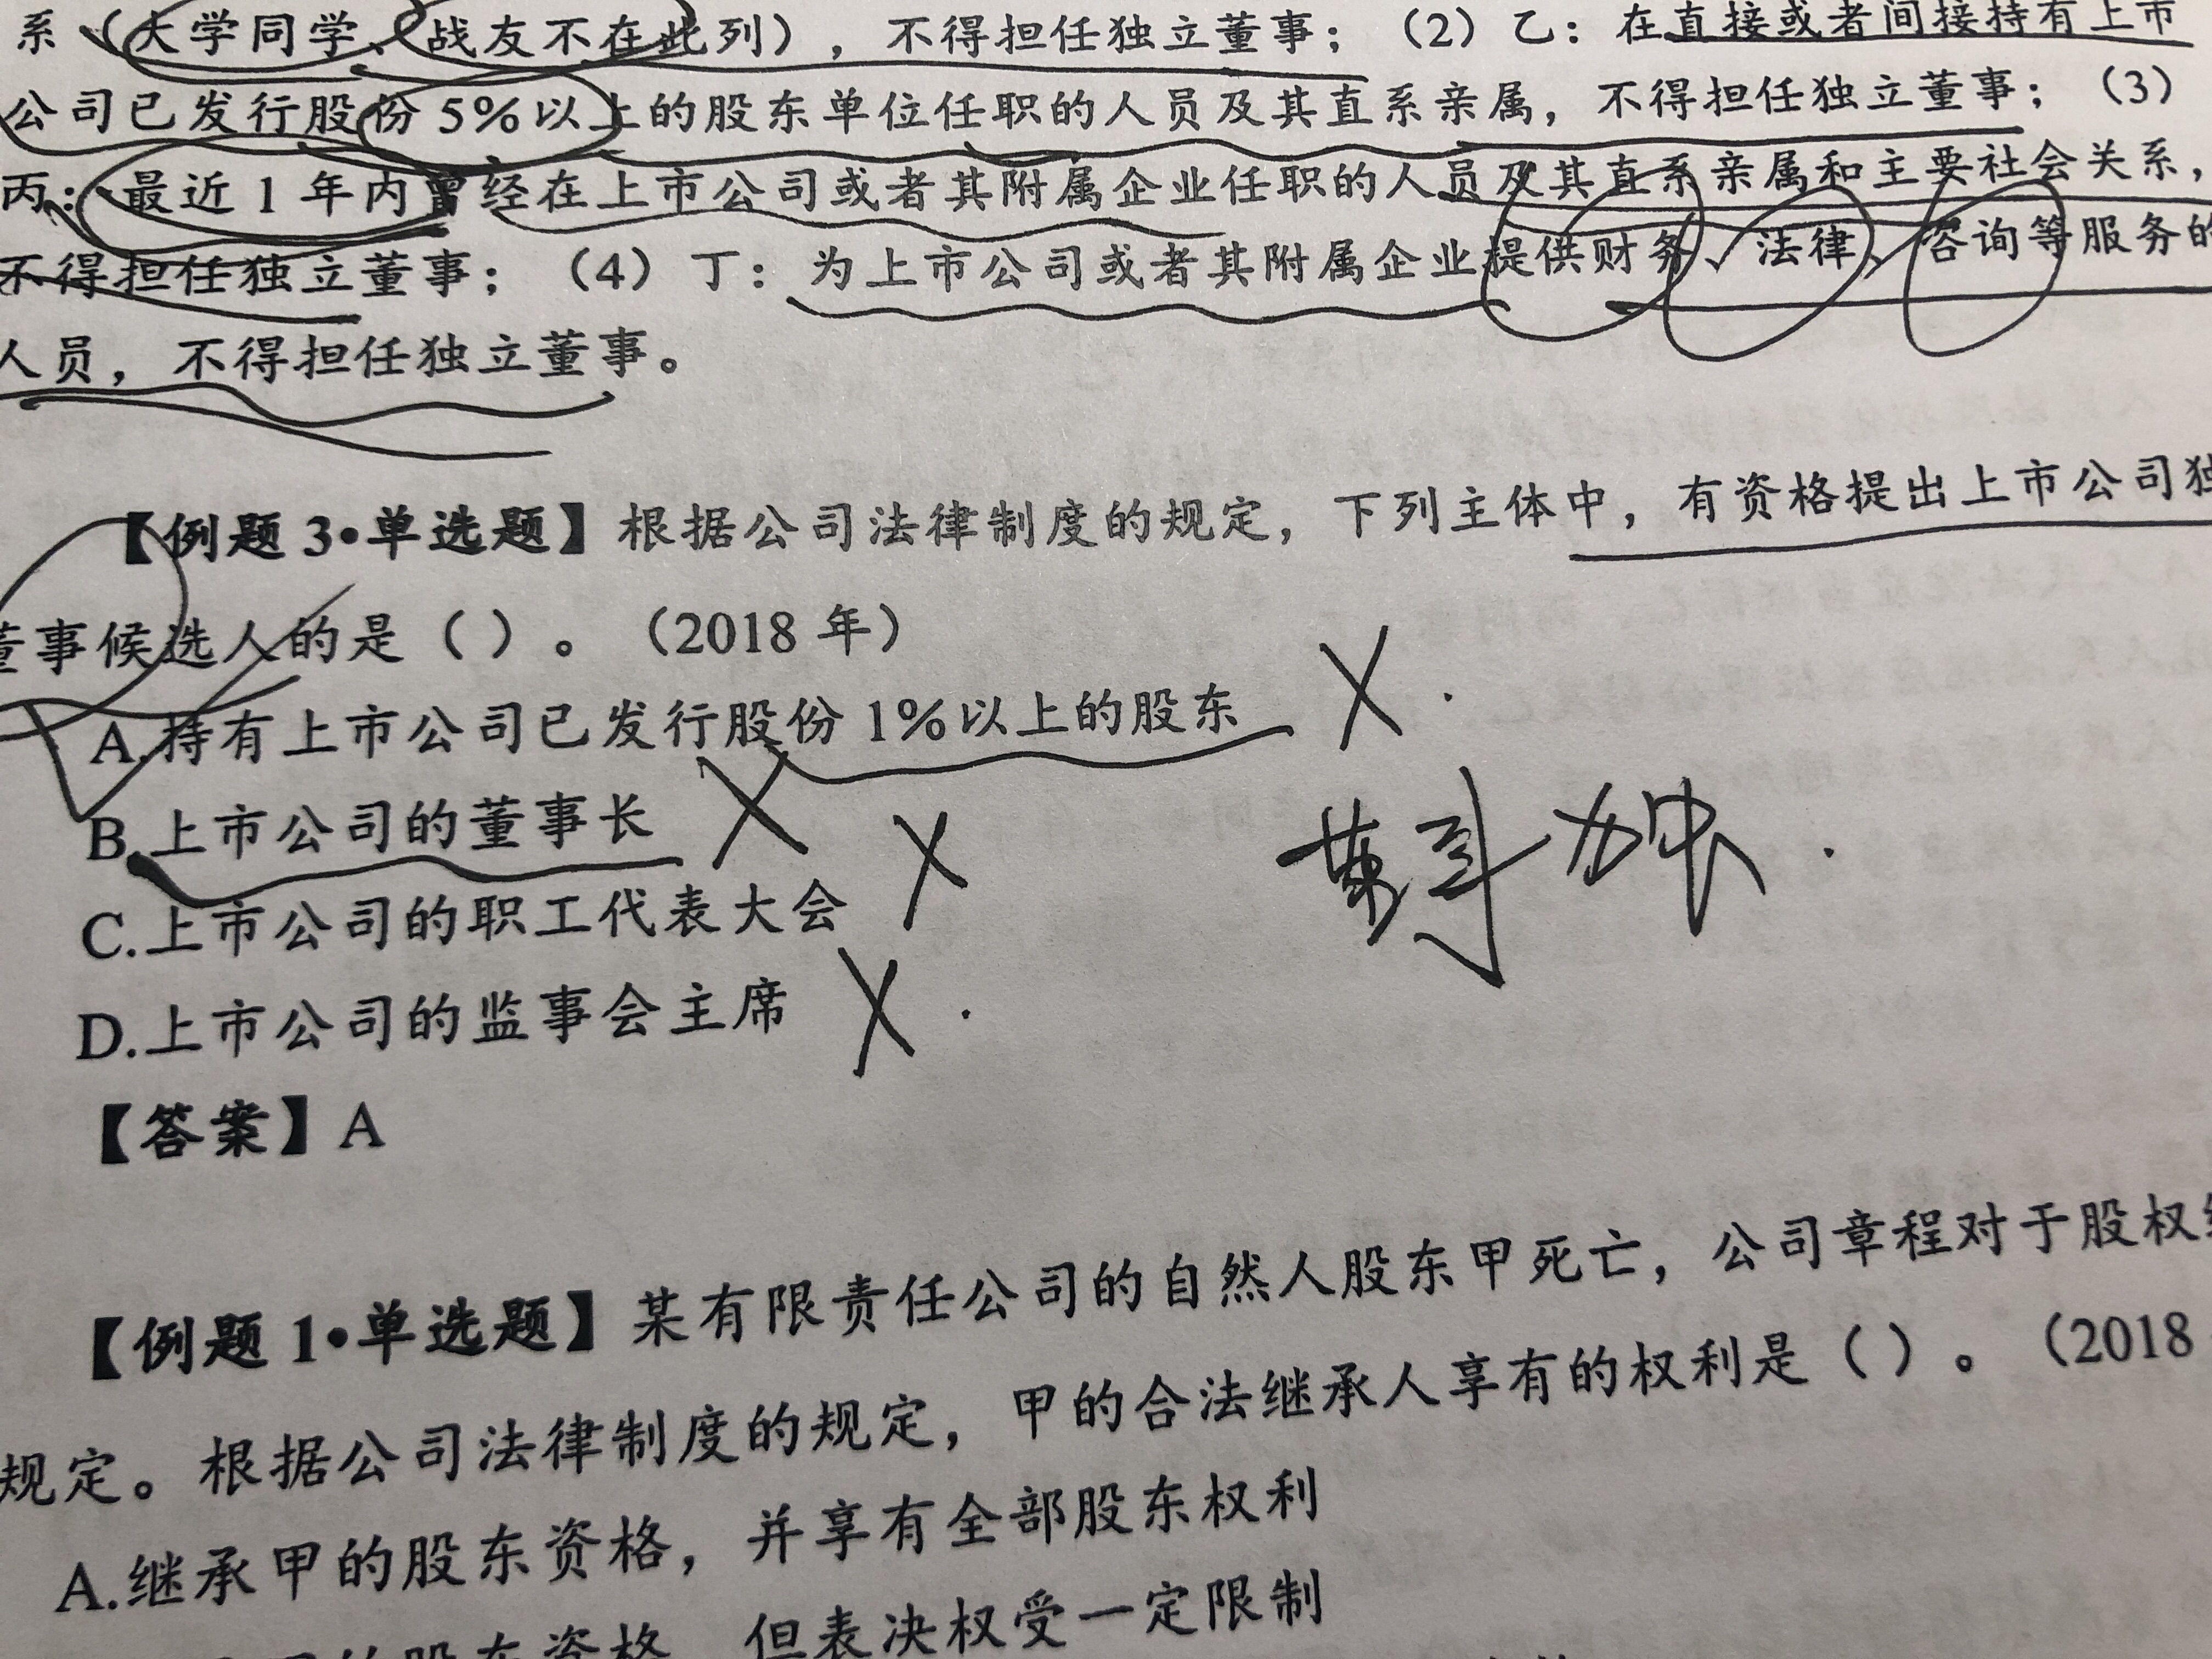 系（大学同学、战友不在此列），不得担任独立董事；（2）乙：在直接或者间接持有上市
公司已发行股份 5%以上的股东单位任职的人员及其直系亲属，不得担任独立董事；（3）
丙：最近 1 年内曾经在上市公司或者其附属企业任职的人员及其直系亲属和主要社会关系，
不得担任独立董事；（4）丁：为上市公司或者其附属企业提供财务、法律、咨询等服务的
人员，不得担任独立董事。
【例题 3•单选题】根据公司法律制度的规定，下列主体中，有资格提出上市公司独
董事候选人的是（ ）。（2018 年）
A.持有上市公司已发行股份 1%以上的股东
B.上市公司的董事长
C.上市公司的职工代表大会
D.上市公司的监事会主席
【答案】A
【例题 1•单选题】某有限责任公司的自然人股东甲死亡，公司章程对于股权
规定。根据公司法律制度的规定，甲的合法继承人享有的权利是（ ）。（2018
A.继承甲的股东资格，并享有全部股东权利
的股东资格，但表决权受一定限制